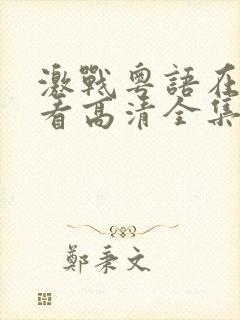 激戰粵語在
看高清全集
鄭秉文